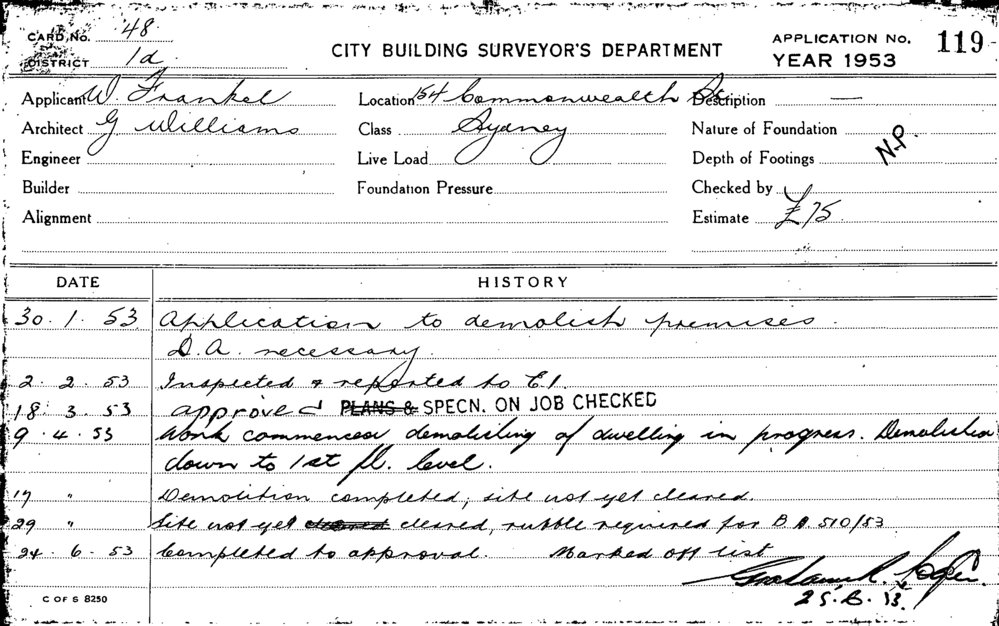 CARD No. 48
DISTRICT 1d
CITY BUILDING SURVEYOR'S DEPARTMENT
APPLICATION No. 119
YEAR 1953
Applicant W. Frankel
Location 154 Commonwealth St.
Description —
Architect G Williams
Class Sydney
Nature of Foundation
N.P.
Engineer
Live Load
Depth of Footings
Builder
Foundation Pressure
Checked by
Alignment
Estimate £75
DATE HISTORY
30.1.53 Application to demolish premises.
D.A. necessary.
2.2.53 Inspected & reported to E.I.
18.3.53 approved PLANS & SPECN. ON JOB CHECKED
9.4.53 Work commenced demolishing of dwelling in progress. Demolished
down to 1st fl. level.
17 " Demolition completed; site not yet cleared.
29 " Site not yet cleared cleared, rubble required for B.A 510/53
24.6.53 Completed to approval. Marked off list
C OF S 8250